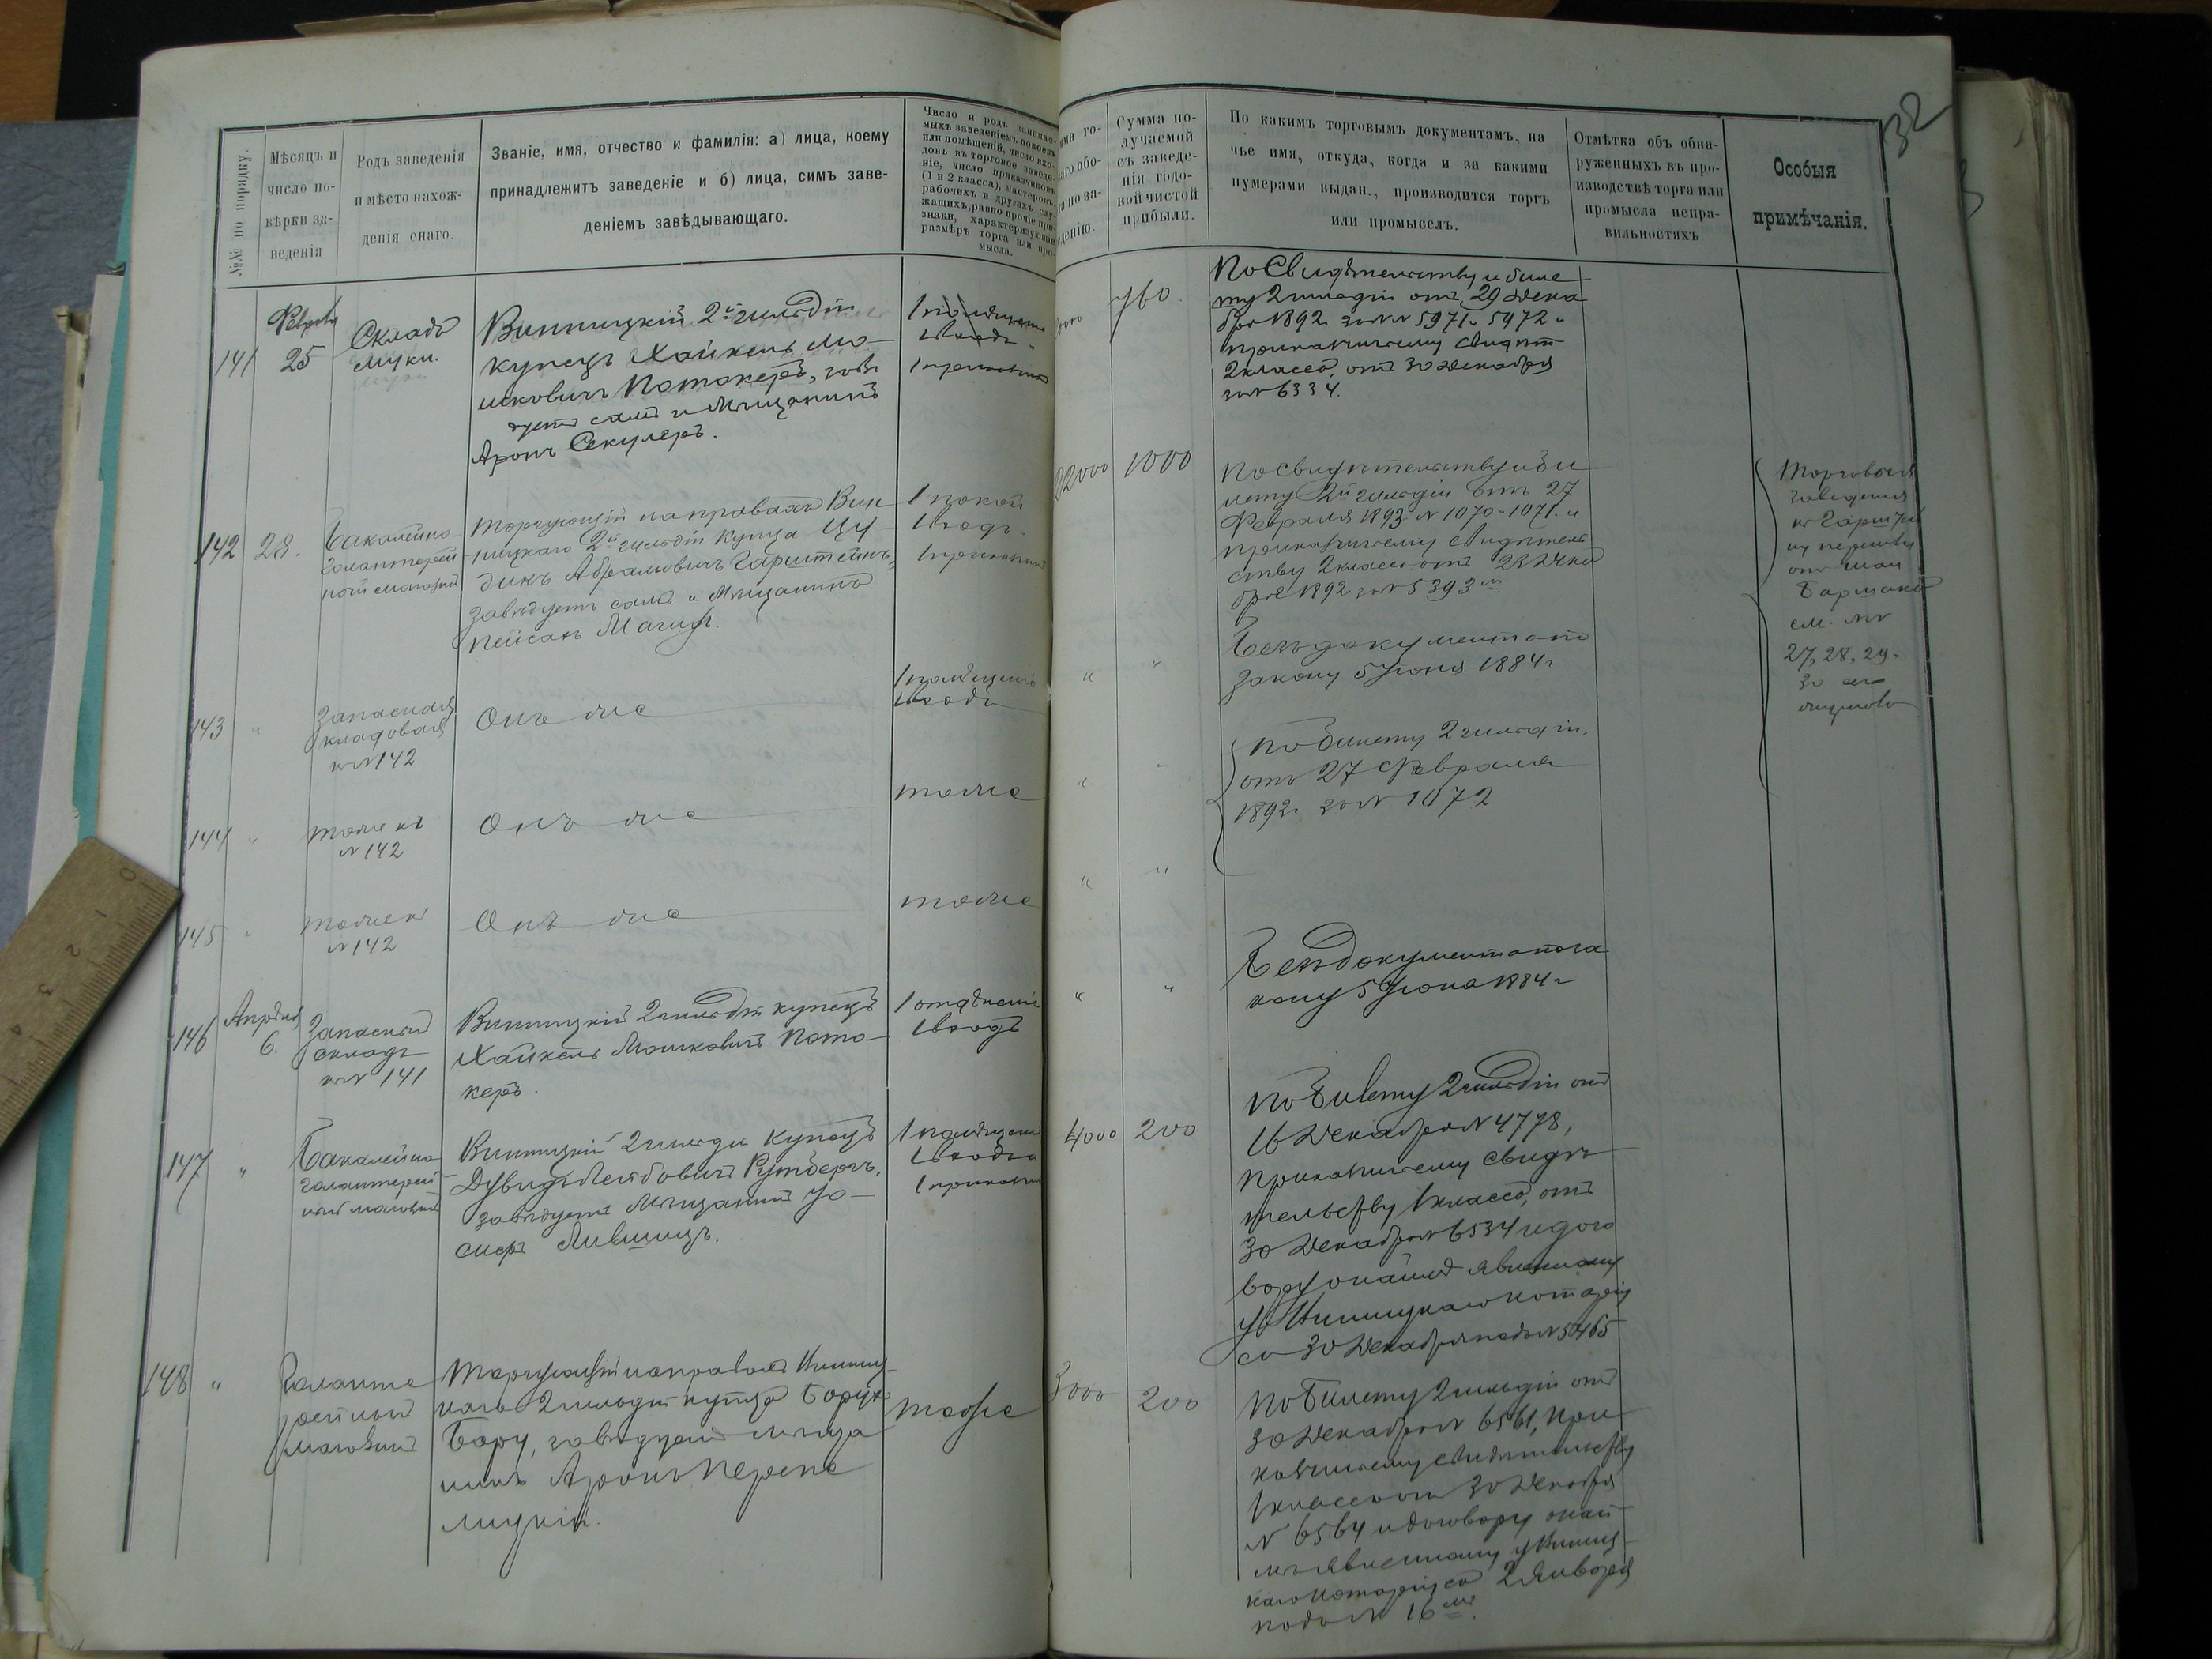 32
№№ по порядку.
Мѣсяцъ и
число по-
вѣрки за-
веденія
Родъ заведенія
и мѣсто нахож-
денія онаго.
Званіе, имя, отчество и фамилія: а) лица, коему
принадлежитъ заведеніе и б) лица, симъ заве-
деніемъ завѣдывающаго.
Число и родъ занимае-
мыхъ заведеніемъ покоевъ
или помѣщеній, число вхо-
довъ въ торговое заведе-
ніе, число приказчиковъ
(1 и 2 класса), мастеровъ,
рабочихъ и другихъ слу-
жащихъ, равно прочіе при-
знаки, характеризующіе
размѣръ торга или про-
мысла.
ма го-
аго обо-
та по за-
денію.
Сумма по-
лучаемой
съ заведе-
нія годо-
вой чистой
прибыли.
По какимъ торговымъ документамъ, на
чье имя, откуда, когда и за какими
нумерами выдан., производится торгъ
или промыселъ.
Отмѣтка объ обна-
руженныхъ въ про-
изводствѣ торга или
промысла непра-
вильностяхъ
Особыя
примѣчанія.
141
25
Складъ
муки.
Винницкій 2й гильдіи
купецъ Хайкель Мо-
шковичъ Потокеръ, завѣ
дуетъ самъ и Мѣщанинъ
Аронъ Секулеръ.
1 помѣщеніе
1 входъ
1 прикащикъ
760.
По Свидѣтельству и биле
ту 2 гильдіи отъ 29 Дека
бря 1892 г. за №№ 5971 и 5972 и
приказчичьему свидѣт
2 класса, отъ 30 Декабря
за № 6334.
142
28.
Бакалейно
галантерей
ный магазинъ
Торгующій на правахъ Вин
ницкаго 2й гильдіи купца Цу-
дикъ Абрамовичъ Гарштейнъ,
завѣдуетъ самъ и Мѣщанинъ
Пейсахъ Магидъ.
1 покой
1 входъ
1 прикащикъ
22000
1000
По свидѣтельству и би
лету 2й гильдіи отъ 27
Февраля 1893 № 1070-1071 и
приказчичьему свидѣтель
ству 2 класса отъ 23 Дека
бря 1892 за № 5393
Торговыя
заведенія
къ Гарштей
ну перешли
отъ
Бармака
см. №№
27, 28, 29.
30 сего
журнала
143
"
Запасная
кладовая
къ № 142
Онъ же
1 помѣщеніе
1 входъ
"
"
Безъ документа по
закону 5 Іюня 1884 г
144
"
тоже къ
№ 142
Онъ же
тоже
"
"
По билету 2 гильдіи,
отъ 27 Февраля
1892 г. за № 1072
145
"
тоже къ
№ 142
Онъ же
тоже
"
"
146
Апрѣля
6.
Запасный
складъ
къ № 141
Винницкій 2 гильдіи купецъ
Хайкель Мошковичъ Пото-
керъ.
1 отдѣленіе
1 входъ
"
"
Безъ документа по за
кону 5 Іюня 1884 г
147
"
Бакалейно
галантерей
ный магазинъ
Винницкій 2 гильдіи купецъ
Дувидъ Лейбовичъ Рутбергъ,
завѣдуетъ Мѣщанинъ Іо-
сифъ Лившицъ.
1 помѣщеніе
1 входъ
1 прикащикъ
4000
200
По билету 2 гильдіи отъ
16 Декабря № 4778,
приказчичьему свидѣ
тельству 1 класса, отъ
30 Декабря № 6534 и дого
вору о наймѣ явленному
у Винницкаго Нотаріуса
30 Декабря подъ № 5465
148
"
Галанте
рейный
магазинъ
Торгующій на правахъ Винниц-
каго 2 гильдіи купца Борухъ
Бару, завѣдуетъ мѣща
нинъ Аронъ Перепе
лицкій.
тоже
3000
200
По билету 2 гильдіи отъ
30 Декабря № 6561, при
казчичьему свидѣтельству
1 класса отъ 30 Декабря
№ 6564 и договору о най-
мѣ явленному у Винниц-
каго Нотаріуса 2 Января
подъ № 16